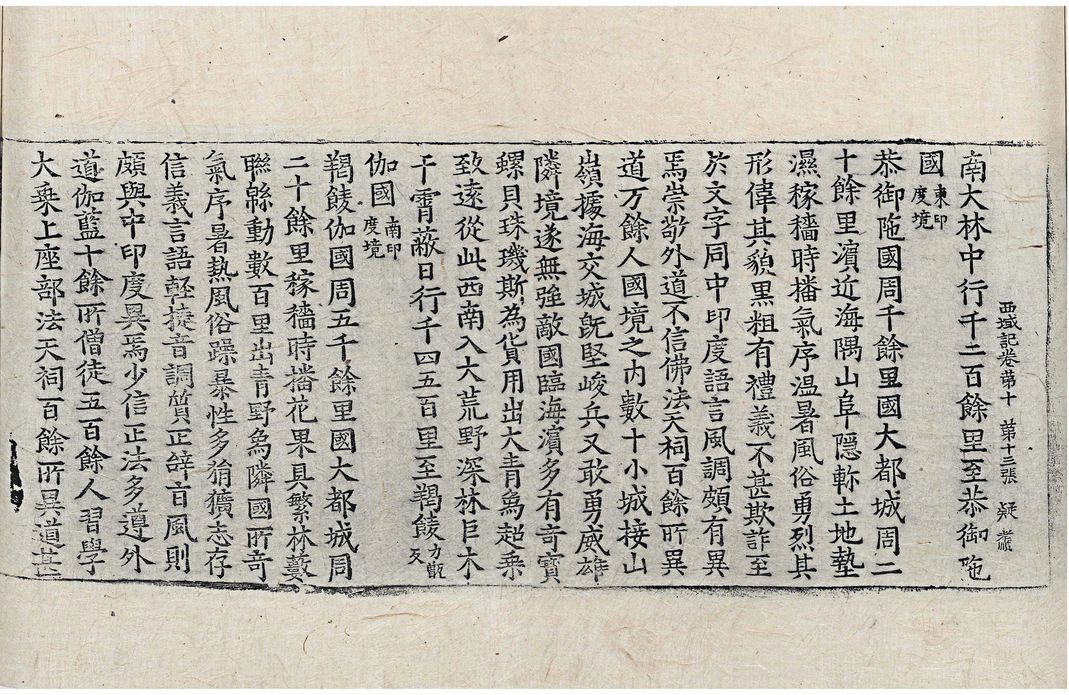 西域記卷第十　第十三張　疑
南大林中行千二百餘里至恭御陁
國東印度境
恭御陁國周千餘里國大都城周二
十餘里濵近海隅山阜隱軫土地墊
濕稼穡時播氣序温暑風俗勇烈其
形偉其貌黒粗有禮義不甚欺詐至
於文字同中印度語言風調頗有異
焉崇敬外道不信佛法天祠百餘所異
道万餘人國境之内數十小城接山
嶺據海交城旣堅峻兵又敢勇威雄
隣境遂無強敵國臨海濵多有奇寶
螺貝珠璣斯為貨用出大青象超乗
致遠從此西南入大荒野深林巨木
干霄蔽日行千四五百里至羯䬋力甑反
伽國南印度境
羯䬋伽國周五千餘里國大都城周
二十餘里稼穡時播花果具繁林藪
聯緜動數百里出青野象隣國所奇
氣序暑熱風俗躁暴性多狷獷志存
信義言語輕捷音調質正辝旨風則
頗與中印度異焉少信正法多遵外
道伽藍十餘所僧徒五百餘人習學
大乗上座部法天祠百餘所異道甚